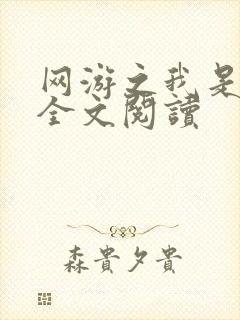 网游之我是
全文閱讀
森貴夕貴